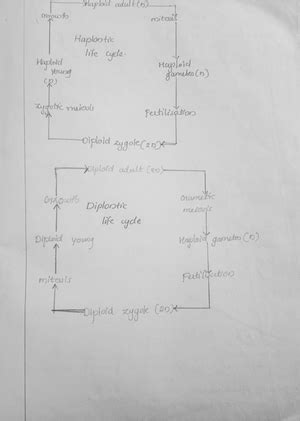 Haploid adult (n)
Growth
mitosis
Haplontic
life cycle
Haploid
young
(n)
Haploid
gametes (n)
zygotic meiosis
Fertilization
Diploid zygote (2n)
Diploid adult (2n)
Growth
Gametic
meiosis
Diplontic
life cycle
Diploid young
Haploid gametes (n)
Fertilization
mitosis
Diploid zygote (2n)